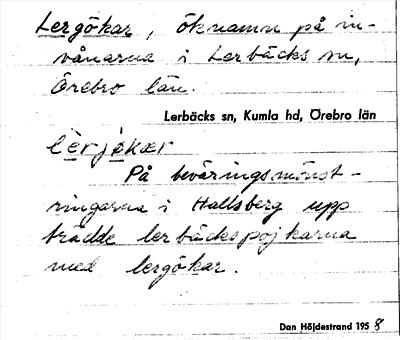 Lergökar, öknamn på in-
vånarna i Lerbäcks sn,
Örebro län.
Lerbäcks sn, Kumla hd, Örebro län
lèrjǿkær
På beväringsmönst-
ringarna i Hallsberg upp
trädde lerbäckspojkarna
med lergökar.
Dan Höjdestrand 1958